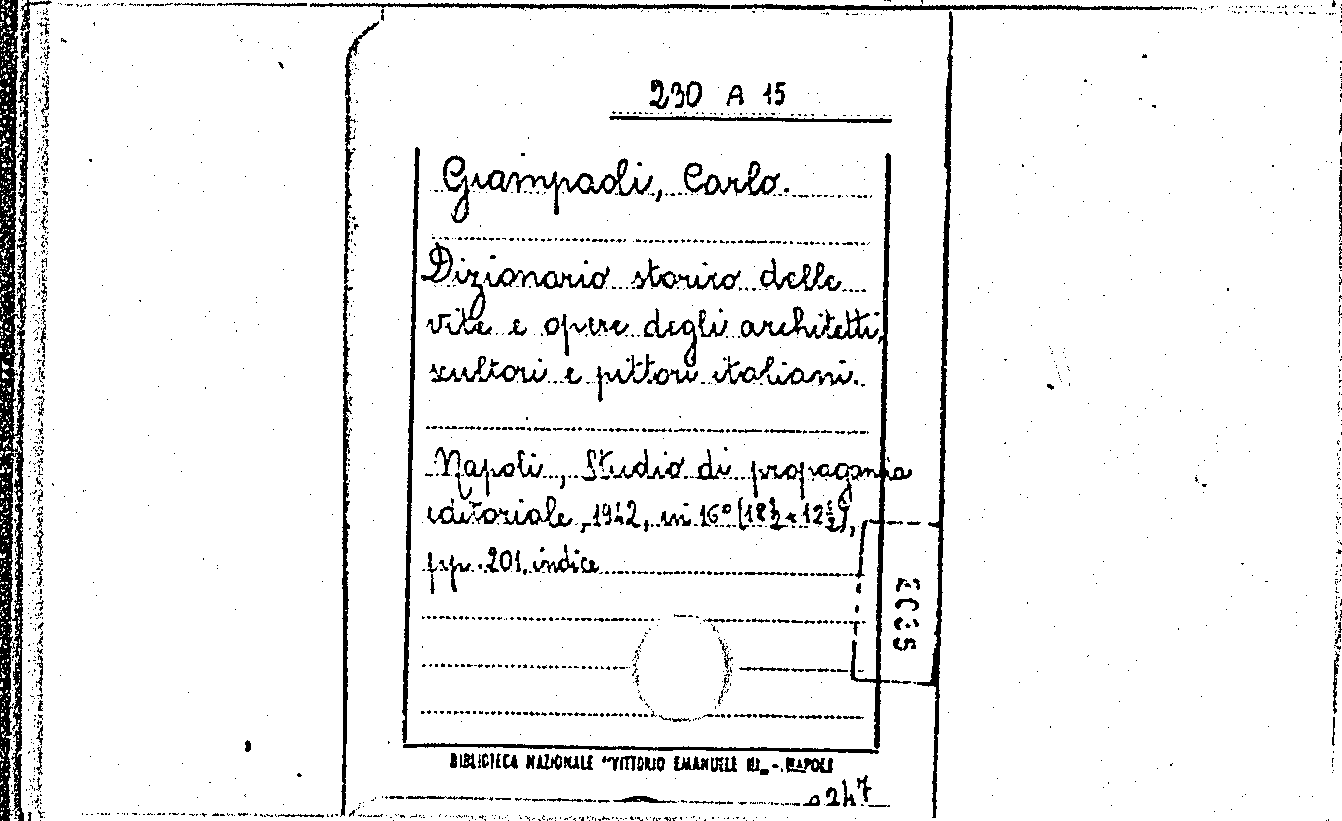 230 A 15
Giampaoli, Carlo.
Dizionario storico delle
vite e opere degli architetti,
scultori e pittori italiani.
Napoli, Studio di propaganda
editoriale, 1942, in 16° (18½ x 12½),
pp. 201, indice
BIBLIOTECA NAZIONALE "VITTORIO EMANUELE III„ - NAPOLI